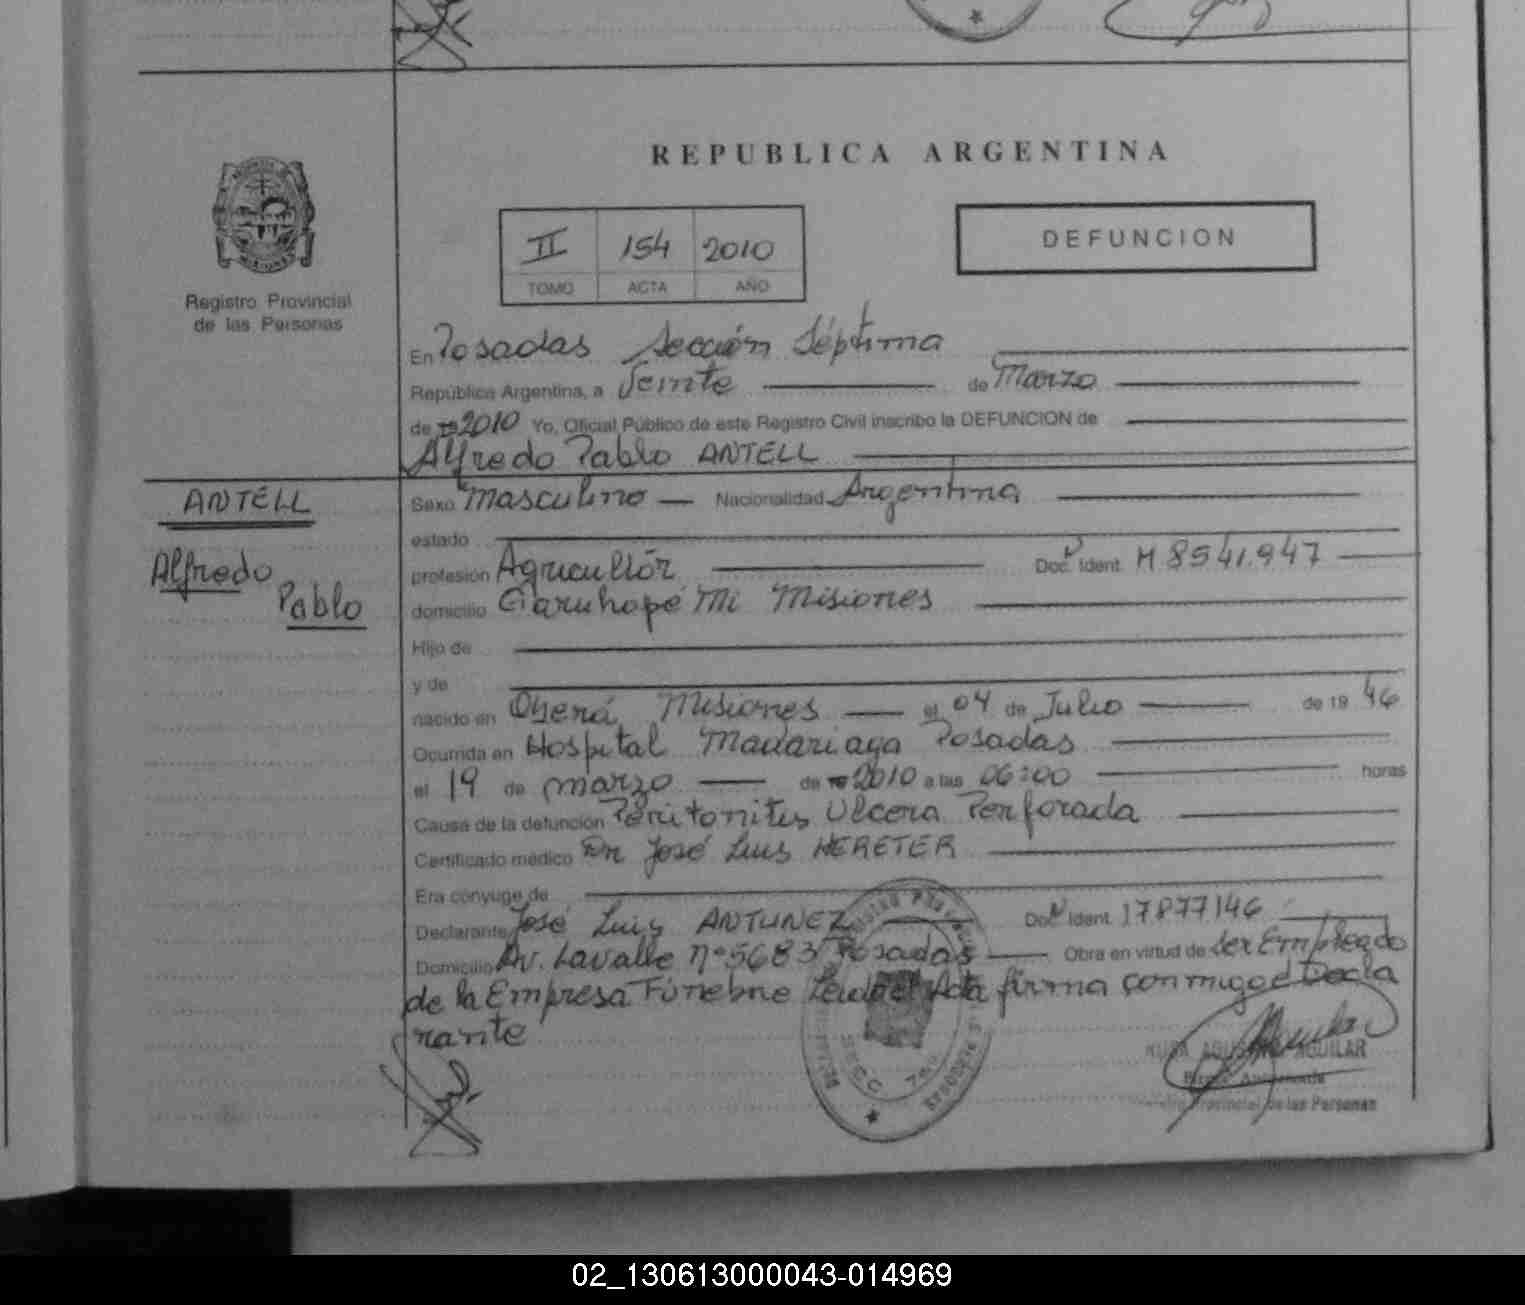 REPUBLICA ARGENTINA
II 154 2010
TOMO ACTA AÑO
DEFUNCION
MISIONES
Registro Provincial
de las Personas
En Posadas Sección Séptima
República Argentina, a Veinte de Marzo
de 2010 Yo, Oficial Público de este Registro Civil inscribo la DEFUNCION de
Alfredo Pablo ANTELL
ANTELL
Alfredo
Pablo
Sexo Masculino Nacionalidad Argentina
estado
profesión Agricultor Doc. Ident. M 8541.947
domicilio Garuhapé Mi Misiones
Hijo de
y de
nacido en Oberá Misiones el 04 de Julio de 19 46
Ocurrida en Hospital Madariaga Posadas
el 19 de marzo de 2010 a las 06:00 horas
Causa de la defunción Peritonitis Ulcera Perforada
Certificado médico Dr José Luis HERETER
Era cónyuge de
Declarante José Luis ANTUNEZ Doc Ident. 17877146
Domicilio Av. Lavalle nº 5683 Posadas Obra en virtud de ser Empleado
de la Empresa Fúnebre Leida el Acta firma conmigo el Decla
rante
SECC. 7
AGUILAR
Provincial de las Personas
02_130613000043-014969